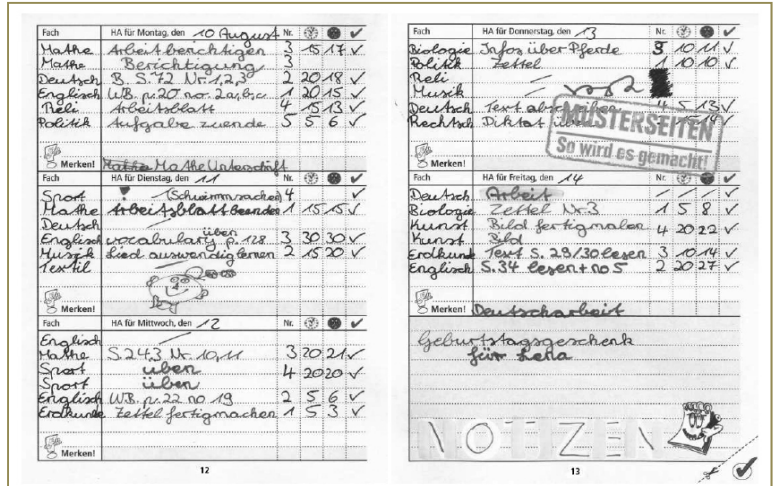 Fach HA für Montag, den 10 August Nr. ✓
Mathe Arbeit berichtigen 3 15 17 ✓
Mathe Berichtigung 3
Deutsch B. S.72 Nr.1,2,3 2 20 18 ✓
Englisch WB. p.20 no. 2a,b,c 1 20 15 ✓
Reli Arbeitsblatt 4 15 13 ✓
Politik Aufgabe zuende 5 5 6 ✓
Merken! Mathe Mathe Unterschrift
Fach HA für Dienstag, den 11 Nr. ✓
Sport ! (Schwimmsachen) 4 ✓
Mathe Arbeitsblatt beenden 1 15 15 ✓
Deutsch
Englisch vocabulary p. 128 üben 3 30 30 ✓
Musik Lied auswendig lernen 2 15 20 ✓
Textil
Merken!
Fach HA für Mittwoch, den 12 Nr. ✓
Englisch
Mathe S.243 Nr. 10,11 3 20 21 ✓
Sport üben 4 20 20 ✓
Sport üben
Englisch WB. p. 22 no 19 2 5 6 ✓
Erdkunde Zettel fertigmachen 1 5 3 ✓
Merken!
12
Fach HA für Donnerstag, den 13 Nr. ✓
Biologie Infos über Pferde 3 10 11 ✓
Politik Zettel 1 10 10 ✓
Reli
Musik
Deutsch Text abschreiben 4 5 13 ✓
Rechtsch Diktat 15 14 ✓
MUSTERSEITEN
So wird es gemacht!
Merken!
Fach HA für Freitag, den 14 Nr. ✓
Deutsch Arbeit / / / ✓
Biologie Zettel Nr.3 1 5 8 ✓
Kunst Bild fertigmalen 4 20 22 ✓
Kunst Bild
Erdkunde Text S. 29/30 lesen 3 10 14 ✓
Englisch S.34 lesen + no 5 2 20 27 ✓
Merken! Deutscharbeit
Geburtstagsgeschenk
für Lena
NOTIZEN
13